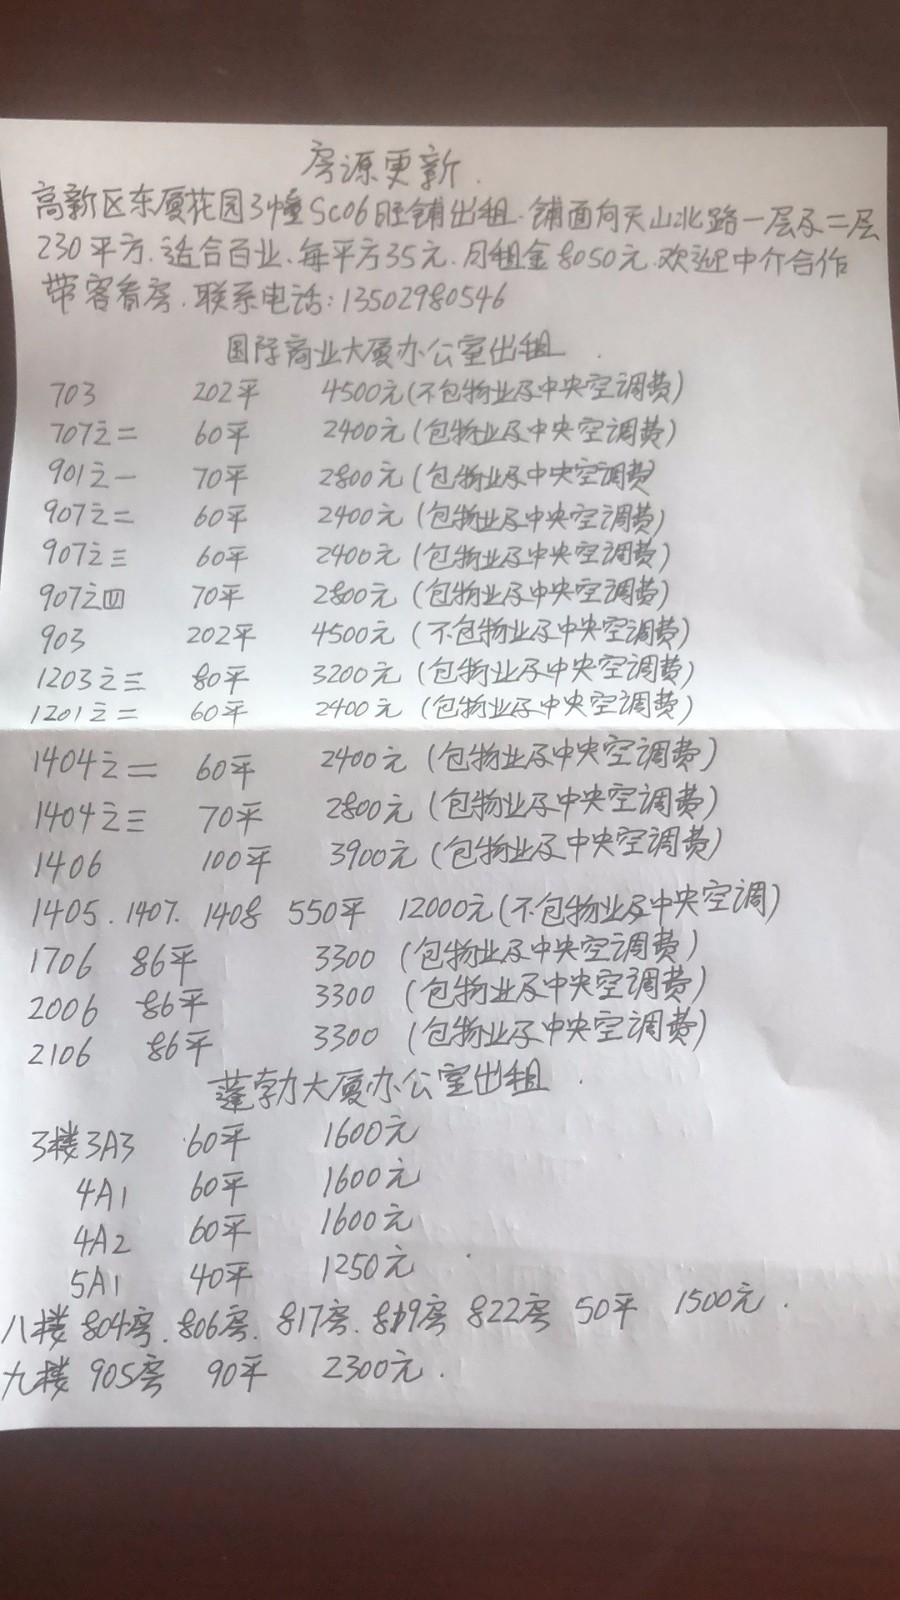 房源更新.
高新区东厦花园3幢SC06旺铺出租.铺面向天山北路一层及二层
230平方.适合百业、每平方35元.月租金8050元.欢迎中介合作
带客看房.联系电话:13502980546
国际商业大厦办公室出租.
703 202平 4500元(不包物业及中央空调费)
707之二 60平 2400元(包物业及中央空调费)
901之一 70平 2800元(包物业及中央空调费)
907之二 60平 2400元(包物业及中央空调费)
907之三 60平 2400元(包物业及中央空调费)
907之四 70平 2800元(包物业及中央空调费)
903 202平 4500元(不包物业及中央空调费)
1203之三 80平 3200元(包物业及中央空调费)
1201之二 60平 2400元(包物业及中央空调费)
1404之二 60平 2400元(包物业及中央空调费)
1404之三 70平 2800元(包物业及中央空调费)
1406 100平 3900元(包物业及中央空调费)
1405.1407.1408 550平 12000元(不包物业及中央空调)
1706 86平 3300(包物业及中央空调费)
2006 86平 3300(包物业及中央空调费)
2106 86平 3300(包物业及中央空调费)
蓬勃大厦办公室出租.
3楼3A3 60平 1600元
4A1 60平 1600元
4A2 60平 1600元
5A1 40平 1250元
八楼804房.806房.817房.819房822房 50平 1500元.
九楼905房 90平 2300元.